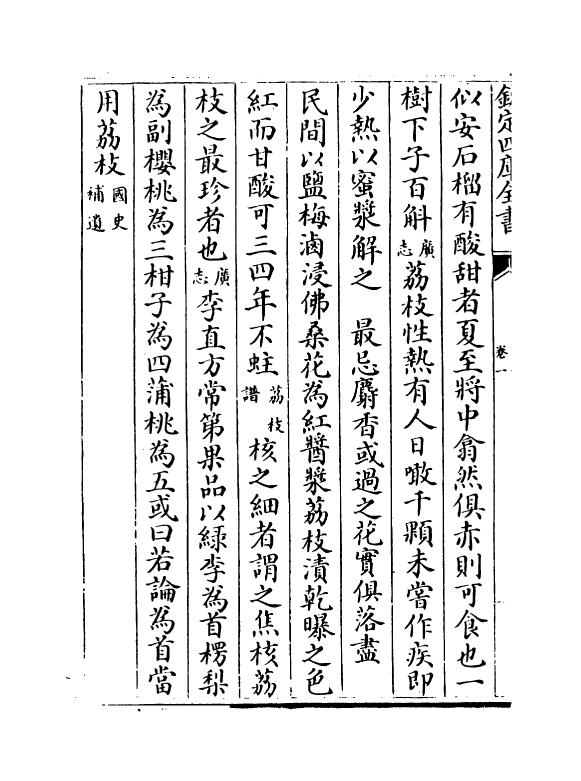 欽定四庫全書
卷一
似安石榴有酸甜者夏至將中翕然俱赤則可食也一
樹下子百斛廣志荔枝性熱有人日噉千顆未嘗作疾即
少熱以蜜漿解之　最忌麝香或過之花實俱落盡
民間以鹽梅滷浸佛桑花為紅醬漿荔枝漬乾曝之色
紅而甘酸可三四年不蛀荔枝譜核之細者謂之焦核荔
枝之最珍者也廣志李直方常第果品以綠李為首楞梨
為副櫻桃為三柑子為四蒲桃為五或曰若論為首當
用荔枝國史補遺